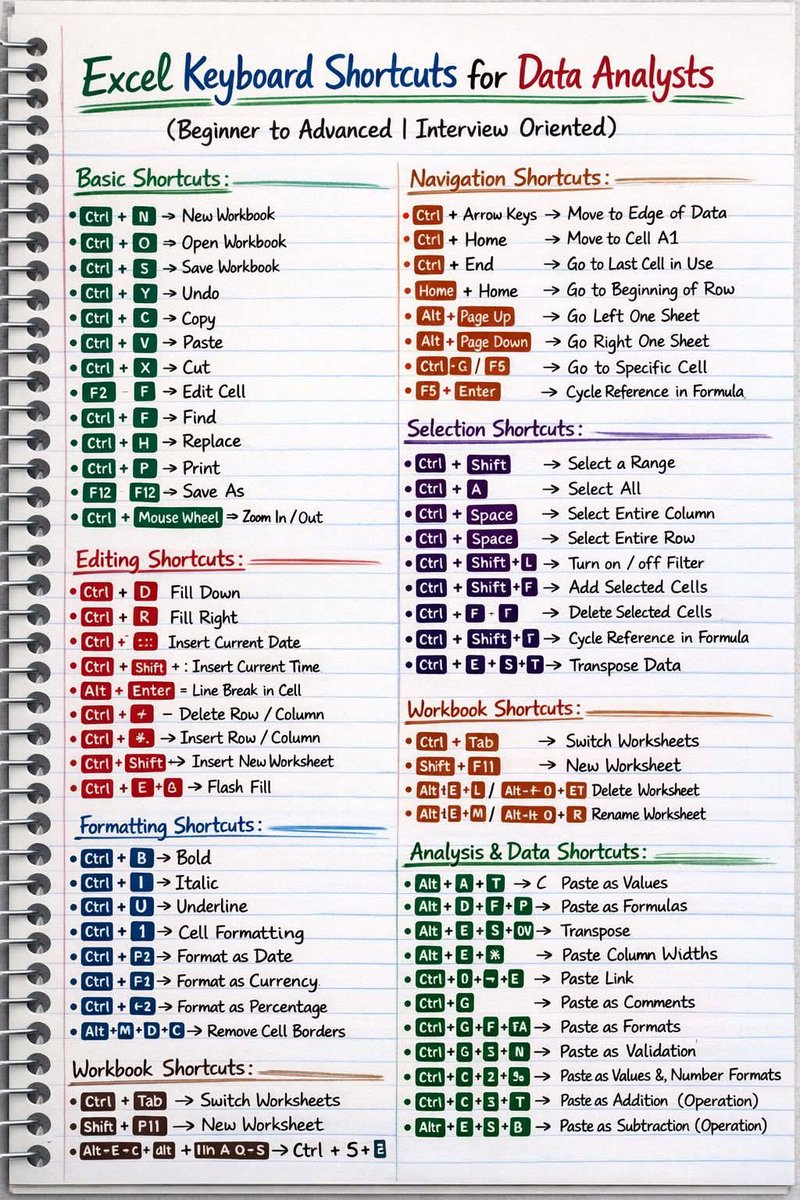 Excel Keyboard Shortcuts for Data Analysts
(Beginner to Advanced | Interview Oriented)
Basic Shortcuts:
• Ctrl + N → New Workbook
• Ctrl + O → Open Workbook
• Ctrl + S → Save Workbook
• Ctrl + Y → Undo
• Ctrl + C → Copy
• Ctrl + V → Paste
• Ctrl + X → Cut
• F2 - F → Edit Cell
• Ctrl + F → Find
• Ctrl + H → Replace
• Ctrl + P → Print
• F12 F12 → Save As
• Ctrl + Mouse Wheel ⇒ Zoom In / Out
Editing Shortcuts:
• Ctrl + D Fill Down
• Ctrl + R Fill Right
• Ctrl + Insert Current Date
• Ctrl + Shift + : Insert Current Time
• Alt + Enter = Line Break in Cell
• Ctrl + + – Delete Row / Column
• Ctrl + *. → Insert Row / Column
• Ctrl + Shift +→ Insert New Worksheet
• Ctrl + E + → Flash Fill
Formatting Shortcuts:
• Ctrl + B → Bold
• Ctrl + I → Italic
• Ctrl + U → Underline
• Ctrl + 1 → Cell Formatting
• Ctrl + P2 → Format as Date
• Ctrl + F1 → Format as Currency
• Ctrl + ←2 → Format as Percentage
• Alt + M + D + C → Remove Cell Borders
Workbook Shortcuts:
• Ctrl + Tab → Switch Worksheets
• Shift + P11 → New Worksheet
• Alt-E-C + alt + IIh A Q-S → Ctrl + S +
Navigation Shortcuts:
• Ctrl + Arrow Keys → Move to Edge of Data
• Ctrl + Home → Move to Cell A1
• Ctrl + End → Go to Last Cell in Use
• Home + Home → Go to Beginning of Row
• Alt + Page Up → Go Left One Sheet
• Alt + Page Down → Go Right One Sheet
• Ctrl -G / F5 → Go to Specific Cell
• F5 + Enter → Cycle Reference in Formula
Selection Shortcuts:
• Ctrl + Shift → Select a Range
• Ctrl + A → Select All
• Ctrl + Space → Select Entire Column
• Ctrl + Space → Select Entire Row
• Ctrl + Shift + L → Turn on / off Filter
• Ctrl + Shift + F → Add Selected Cells
• Ctrl + F - → Delete Selected Cells
• Ctrl + Shift + → Cycle Reference in Formula
• Ctrl + E + S + T → Transpose Data
Workbook Shortcuts:
• Ctrl + Tab → Switch Worksheets
• Shift + F11 → New Worksheet
• Alt + E + L / Alt + O + ET Delete Worksheet
• Alt + E + M / Alt-H O + R Rename Worksheet
Analysis & Data Shortcuts:
• Alt + A + T → C Paste as Values
• Alt + D + F + P → Paste as Formulas
• Alt + E + S + OV → Transpose
• Alt + E + * → Paste Column Widths
• Ctrl + O + + E → Paste Link
• Ctrl + G → Paste as Comments
• Ctrl + G + F + FA → Paste as Formats
• Ctrl + G + S + N → Paste as Validation
• Ctrl + C + 2 + → Paste as Values &, Number Formats
• Ctrl + C + 3 + T → Paste as Addition (Operation)
• Altr + E + S + B → Paste as Subtraction (Operation)